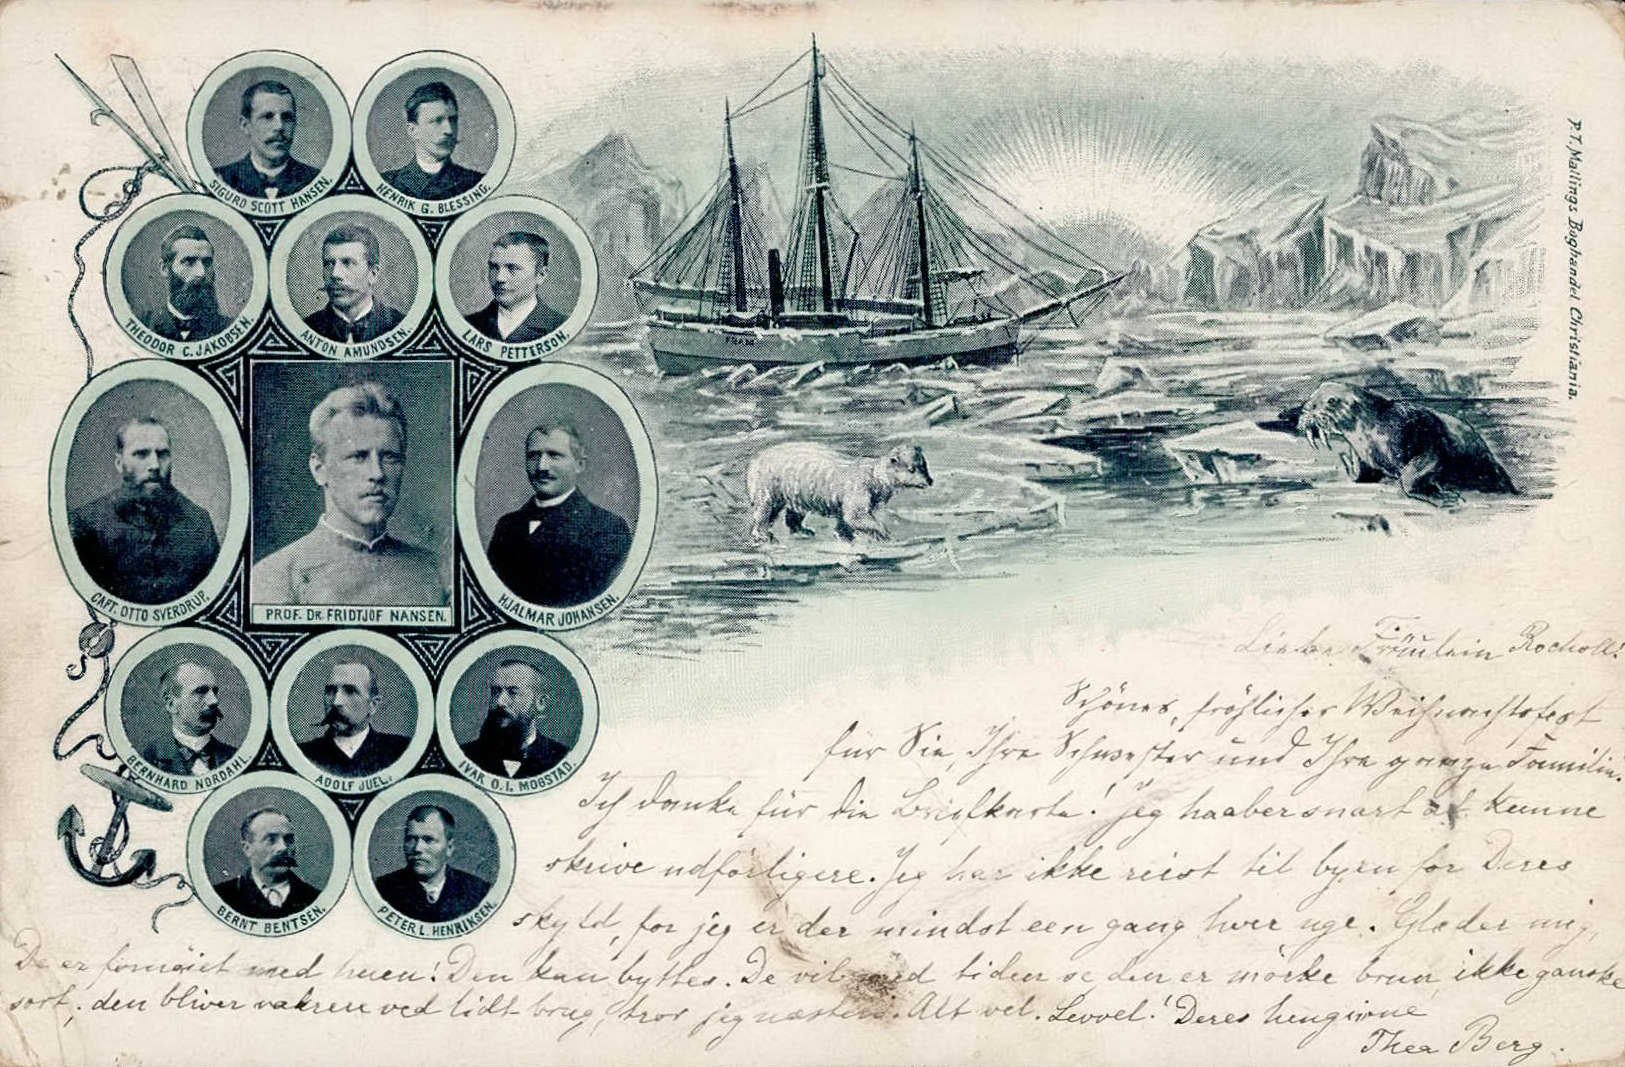 SIGURD SCOTT HANSEN.
HENRIK G. BLESSING.
THEODOR C. JAKOBSEN.
ANTON AMUNDSEN.
LARS PETTERSON.
CAPT. OTTO SVERDRUP.
PROF. DR. FRIDTJOF NANSEN.
HJALMAR JOHANSEN.
BERNHARD NORDAHL.
ADOLF JUEL.
IVAR O. I. MOGSTAD.
BERNT BENTSEN.
PETER L. HENRIKSEN.
FRAM
P. T. Mallings Boghandel Christiania.
Liebe Fräulein Rocholl!
Schönes, fröhliches Weihnachtsfest
für Sie, Ihre Schwester und Ihre ganze Familie.
Ich danke für die Briefkarte! Jeg haaber snart at kunne
skrive udförligere. Jeg har ikke reist til byen for Deres
skyld, for jeg er der mindst een gang hver uge. Glæder mig,
De er fornöiet med huen! Den kan byttes. De vil med tiden se den er mörke brun, ikke ganske
sort; den bliver vakrere ved lidt brug, tror jeg næsten. Alt vel. Levvel! Deres hengivne
Thea Berg.